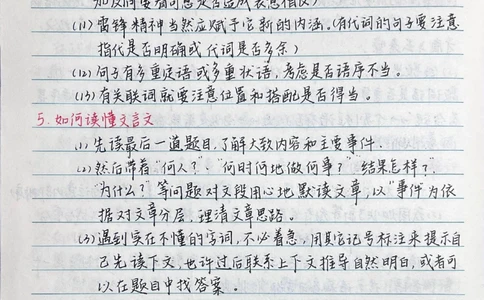 (11)雷锋精神当然应赋予它新的内涵。(有代词的句子要注意
指代是否明确或代词是否多余)
(12)句子有多重定语或多重状语，考虑是否语序不当。
(13)有关联词就要注意位置和搭配是否得当。
5.如何读懂文言文
(1)先读最后一道题目，了解大致内容和主要事件。
(2)然后带着“何人？”“何时何地做何事？”“结果怎样？”
“为什么？”等问题对文段用心地默读文章，以“事件”为依
据对文章分层，理清文章思路。
(3)遇到实在不懂的字词，不必着急，用其它记号标注来提示自
己先读下文，也许过后联系上下文推导自然明白，或者可
以在题目中找答案。